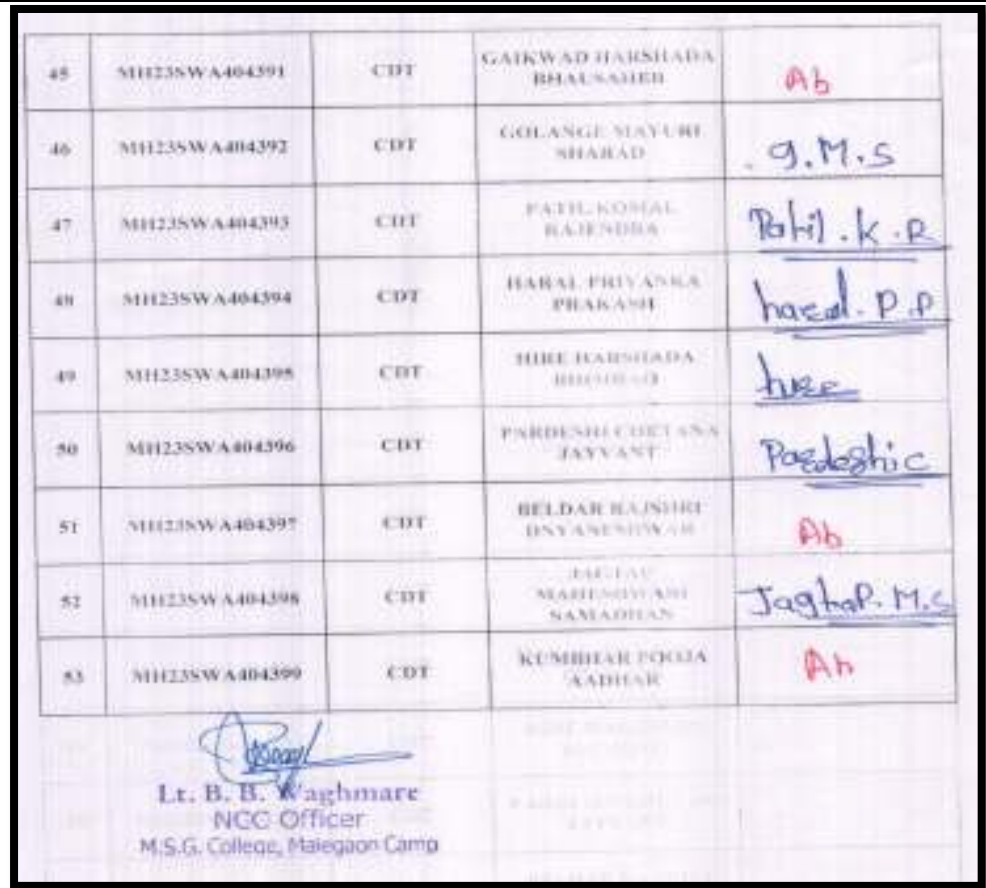 45 MH23SWA404391 CDT GAIKWAD HARSHADA
BHAUSAHEB Ab
46 MH23SWA404392 CDT GOLANGE MAYURI
SHARAD . G.M.S
47 MH23SWA404393 CDT PATIL KOMAL
RAJENDRA Patil . K . R
48 MH23SWA404394 CDT HARAL PRIYANKA
PRAKASH haral. P.P
49 MH23SWA404395 CDT HIRE HARSHADA
50 MH23SWA404396 CDT PARDESHI CHETANA
JAYVANT Pardeshi c
51 MH23SWA404397 CDT BELDAR RAJSHRI
DNYANESHWAR Ab
52 MH23SWA404398 CDT JAGTAP
MAHESHWARI
SAMADHAN Jaghap. M.S
53 MH23SWA404399 CDT KUMBHAR POOJA
AADHAR Ab
Lt. B. B. Waghmare
NCC Officer
M.S.G. College, Malegaon Camp